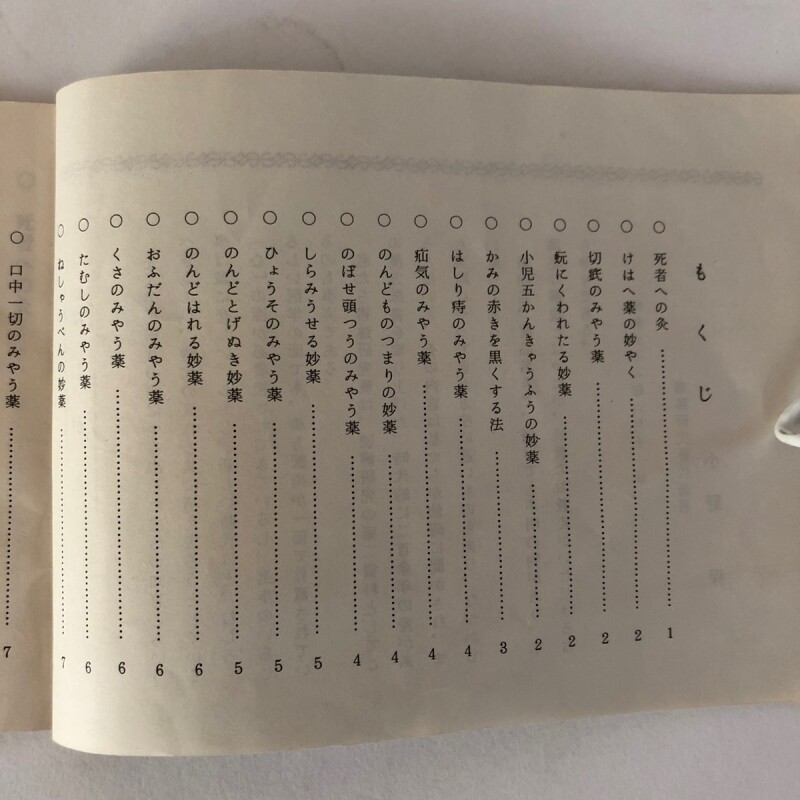 もくじ
○ 死者への灸 …… 1
○ けはへ薬の妙やく …… 2
○ 切疵のみやう薬 …… 2
○ にくわれたる妙薬 …… 2
○ 小児五かんきゃうふうの妙薬 …… 2
○ かみの赤きを黒くする法 …… 3
○ はしり痔のみやう薬 …… 4
○ 疝気のみやう薬 …… 4
○ のんどものつまりの妙薬 …… 4
○ のぼせ頭つうのみやう薬 …… 4
○ しらみうせる妙薬 …… 5
○ ひょうそのみやう薬 …… 5
○ のんどとげぬき妙薬 …… 5
○ のんどはれる妙薬 …… 6
○ おふだんのみやう薬 …… 6
○ くさのみやう薬 …… 6
○ たむしのみやう薬 …… 6
○ ねしゃうべんの妙薬 …… 7
○ 口中一切のみやう薬 …… 7